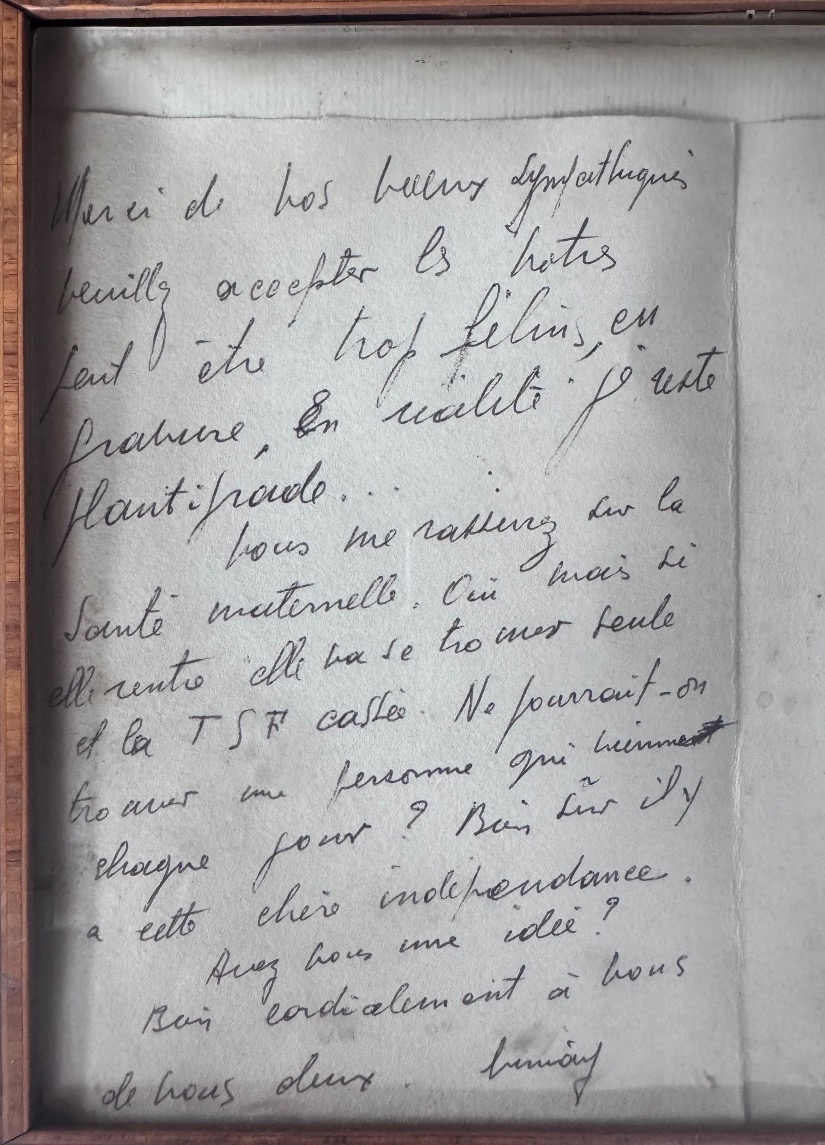 Merci de vos voeux sympathiques
veuillez accepter les notres
peut être trop félins, en
gravure, En réalité je reste
plantigrade...
Vous me rassurez sur la
Santé maternelle. Oui mais si
elle rentre elle va se trouver seule
et la TSF cassée. Ne pourrait-on
trouver une personne qui vienne
chaque jour ? Bien sûr il y
a cette chère indépendance.
Avez vous une idée ?
Bien cordialement à vous
de nous deux.